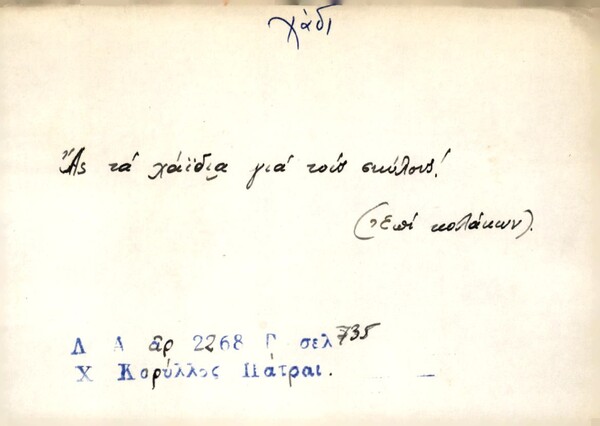 χάδι
Ἄς τά χάϊδια γιά τούς σκύλους!
(Ἐπί κολάκων).
Λ Α ἀρ 2268 Γ σελ 735
Χ Κορύλλος Πάτραι.